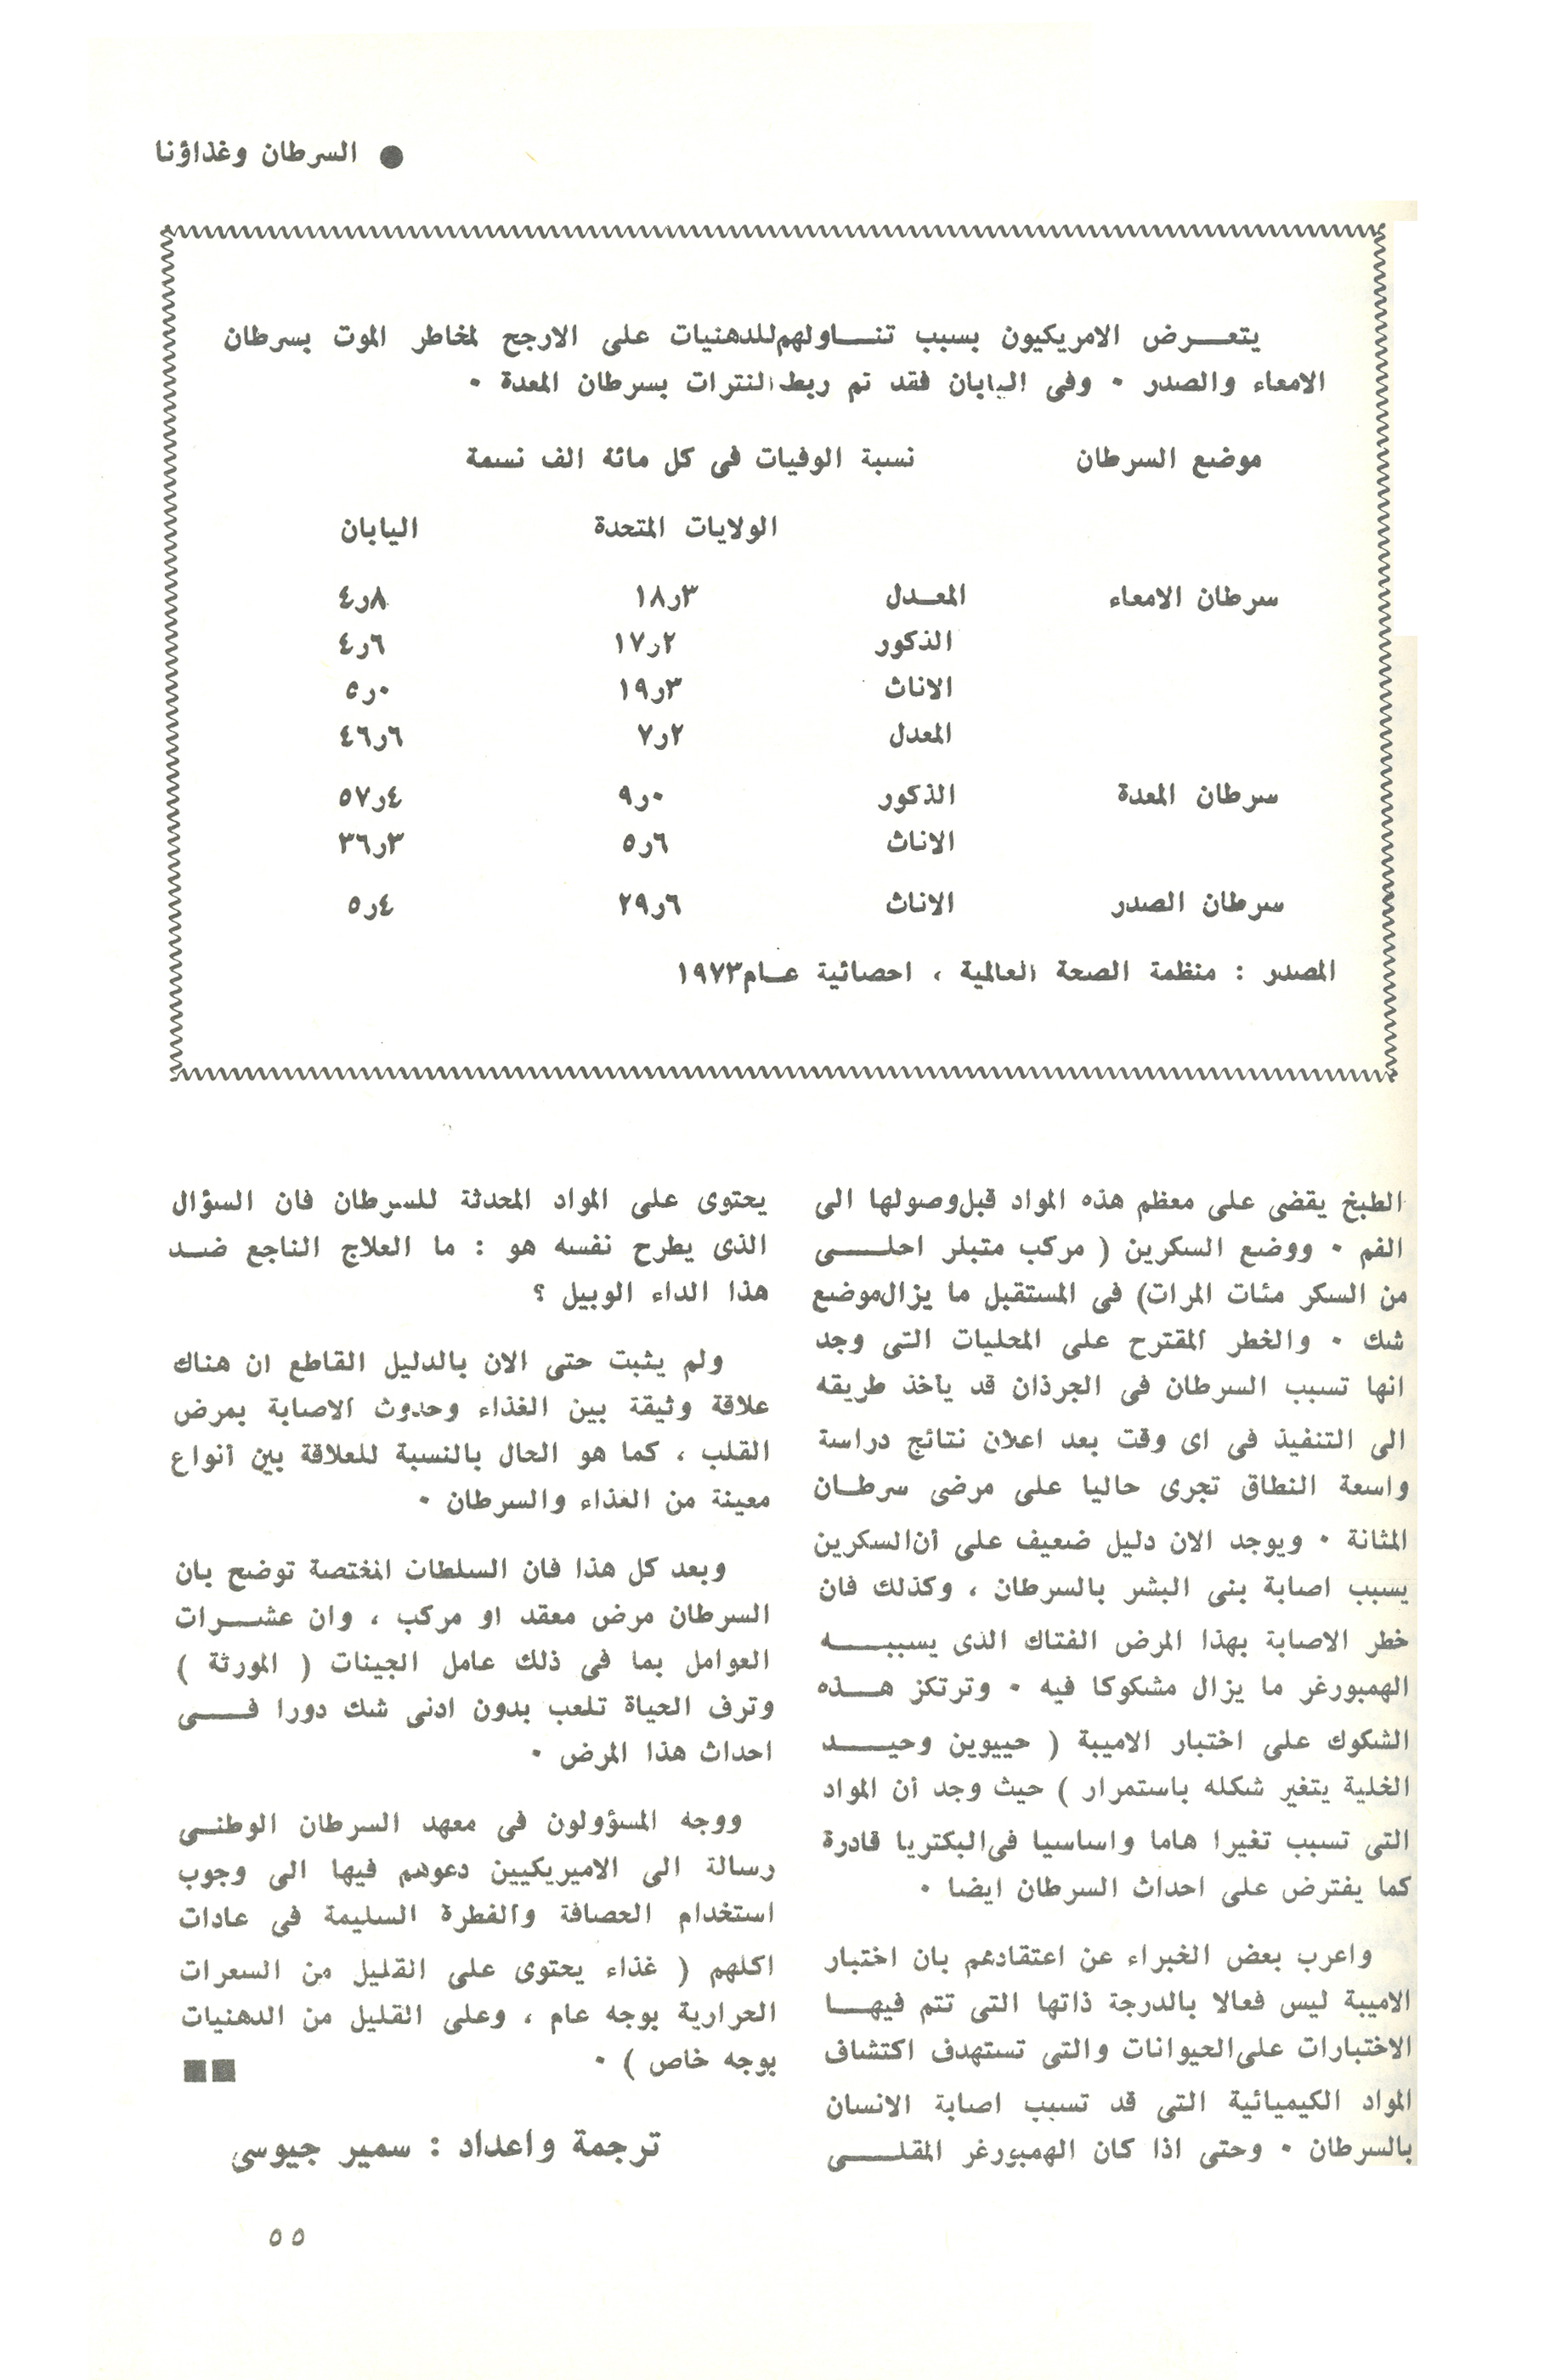 ● السرطان وغذاؤنا
يتعـــرض الامريكيون بسبب تنـــاولهم للدهنيات على الارجح لمخاطر الموت بسرطان
الامعاء والصدر ٠ وفى اليابان فقد تم ربط النترات بسرطان المعدة ٠
موضع السرطان نسبة الوفيات فى كل مائة الف نسمة
الولايات المتحدة اليابان
سرطان الامعاء المعـدل ٣ر١٨ ٨ر٤
الذكور ٢ر١٧ ٦ر٤
الاناث ٣ر١٩ ٠ر٥
المعدل ٢ر٧ ٦ر٤٦
سرطان المعدة الذكور ٠ر٩ ٤ر٥٧
الاناث ٦ر٥ ٣ر٣٦
سرطان الصدر الاناث ٦ر٢٩ ٤ر٥
المصدر : منظمة الصحة العالمية ، احصائية عـام ١٩٧٣
الطبخ يقضى على معظم هذه المواد قبل وصولها الى
الفم ٠ ووضع السكرين ( مركب متبلر احلـــى
من السكر مئات المرات) فى المستقبل ما يزال موضع
شك ٠ والخطر المقترح على المحليات التى وجد
انها تسبب السرطان فى الجرذان قد يأخذ طريقه
الى التنفيذ فى اى وقت بعد اعلان نتائج دراسة
واسعة النطاق تجرى حاليا على مرضى سرطـان
المثانة ٠ ويوجد الان دليل ضعيف على أن السكرين
يسبب اصابة بنى البشر بالسرطان ، وكذلك فان
خطر الاصابة بهذا المرض الفتاك الذى يسببـــه
الهمبورغر ما يزال مشكوكا فيه ٠ وترتكز هـــذه
الشكوك على اختبار الاميبة ( حييوين وحيـــد
الخلية يتغير شكله باستمرار ) حيث وجد أن المواد
التى تسبب تغيرا هاما واساسيا فى البكتريا قادرة
كما يفترض على احداث السرطان ايضا ٠
واعرب بعض الخبراء عن اعتقادهم بان اختبار
الاميبة ليس فعالا بالدرجة ذاتها التى تتم فيهـــا
الاختبارات على الحيوانات والتى تستهدف اكتشاف
المواد الكيميائية التى قد تسبب اصابة الانسان
بالسرطان ٠ وحتى اذا كان الهمبورغر المقلـــى
يحتوى على المواد المحدثة للسرطان فان السؤال
الذى يطرح نفسه هو : ما العلاج الناجع ضـــد
هذا الداء الوبيل ؟
ولم يثبت حتى الان بالدليل القاطع ان هناك
علاقة وثيقة بين الغذاء وحدوث الاصابة بمرض
القلب ، كما هو الحال بالنسبة للعلاقة بين أنواع
معينة من الغذاء والسرطان ٠
وبعد كل هذا فان السلطات المختصة توضح بان
السرطان مرض معقد او مركب ، وان عشـــرات
العوامل بما فى ذلك عامل الجينات ( المورثة )
وترف الحياة تلعب بدون ادنى شك دورا فـــى
احداث هذا المرض ٠
ووجه المسؤولون فى معهد السرطان الوطنـى
رسالة الى الاميريكيين دعوهم فيها الى وجوب
استخدام الحصافة والفطرة السليمة فى عادات
اكلهم ( غذاء يحتوى على القليل من السعرات
الحرارية بوجه عام ، وعلى القليل من الدهنيات
بوجه خاص ) ٠ ■■
ترجمة واعداد : سمير جيوسى
٥٥